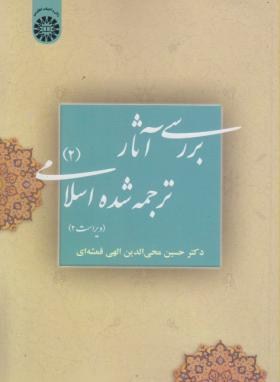 بررسی آثار
ترجمه شده اسلامی (۲)
(ویراست ۲)
دکتر حسین محی‌الدین الهی قمشه‌ای